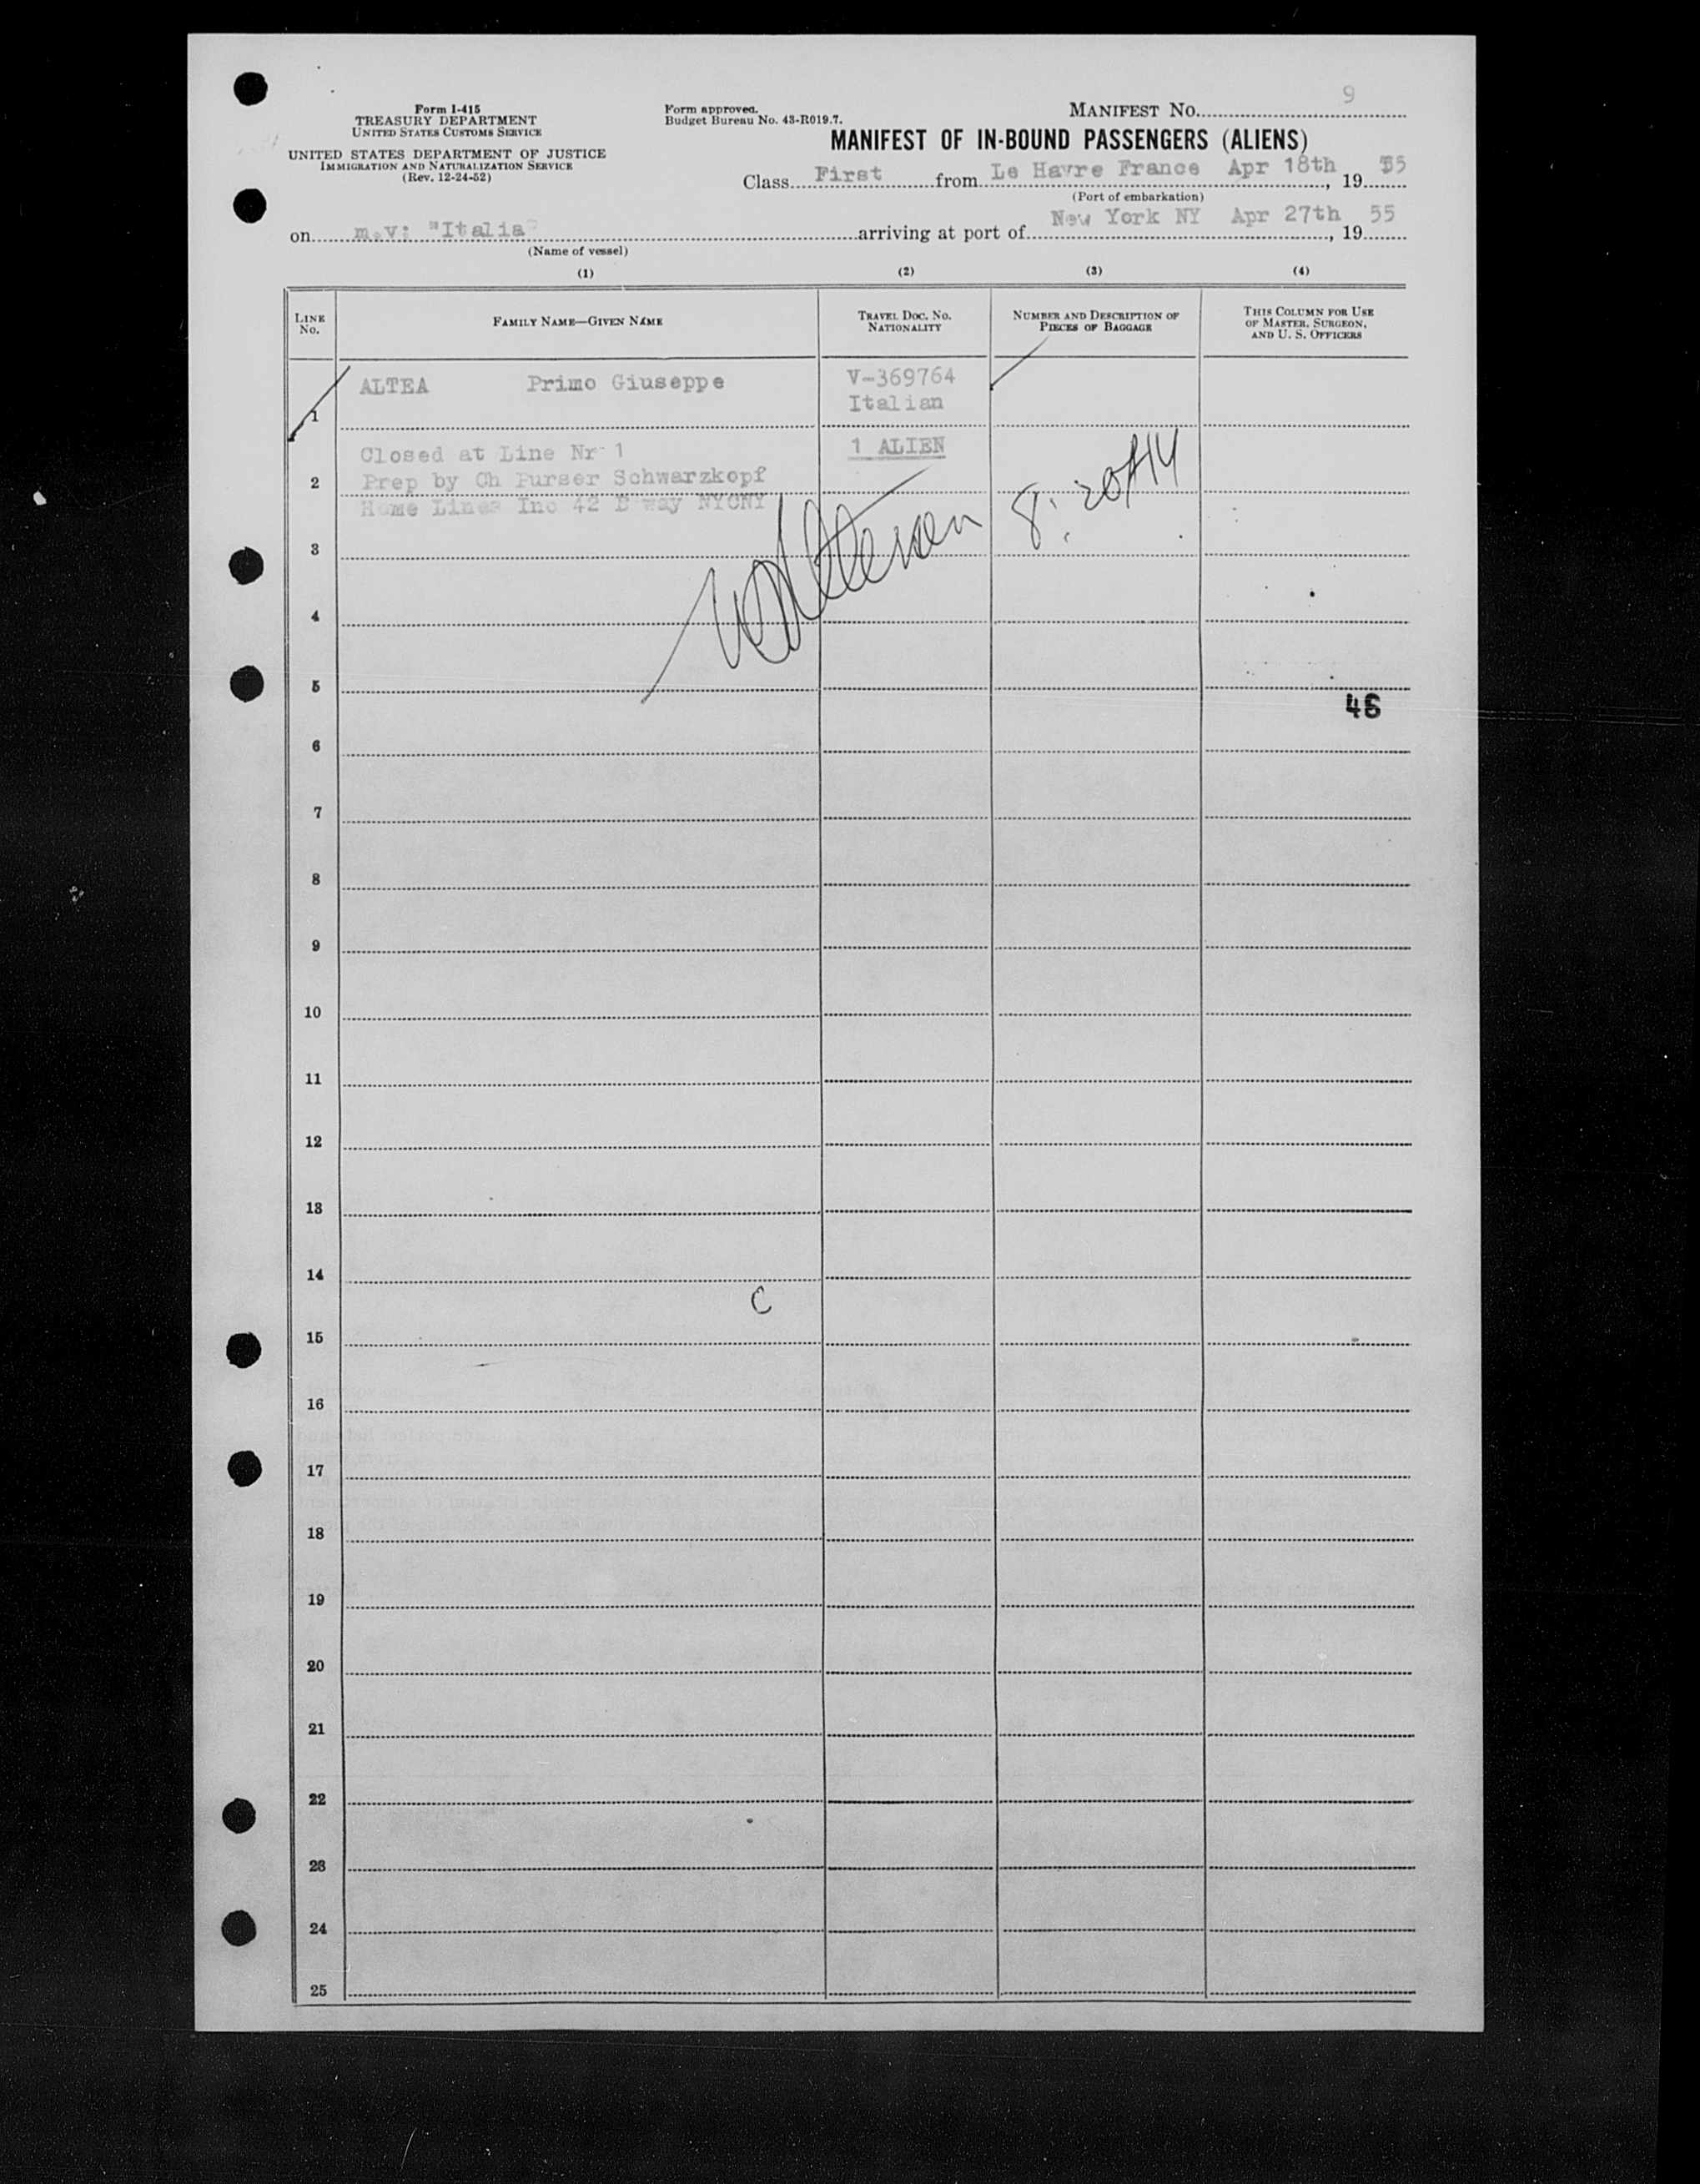 9
Form I-415
TREASURY DEPARTMENT
UNITED STATES CUSTOMS SERVICE
UNITED STATES DEPARTMENT OF JUSTICE
IMMIGRATION AND NATURALIZATION SERVICE
(Rev. 12-24-52)
Form approved.
Budget Bureau No. 43-R019.7.
MANIFEST No.
MANIFEST OF IN-BOUND PASSENGERS (ALIENS)
Class First from Le Havre France Apr 18th, 19 55
(Port of embarkation)
on m.v: "Italia" arriving at port of New York NY Apr 27th, 19 55
(Name of vessel)
(1) (2) (3) (4)
LINE No. FAMILY NAME—GIVEN NAME TRAVEL DOC. No. NATIONALITY NUMBER AND DESCRIPTION OF PIECES OF BAGGAGE THIS COLUMN FOR USE OF MASTER, SURGEON, AND U. S. OFFICERS
ALTEA Primo Giuseppe V-369764
Italian
1
Closed at Line Nr 1 1 ALIEN
2 Prep by Ch Purser Schwarzkopf
Home Lines Inc 42 B way NYCNY
3
4
5
46
6
7
8
9
10
11
12
13
14
C
15
16
17
18
19
20
21
22
23
24
25